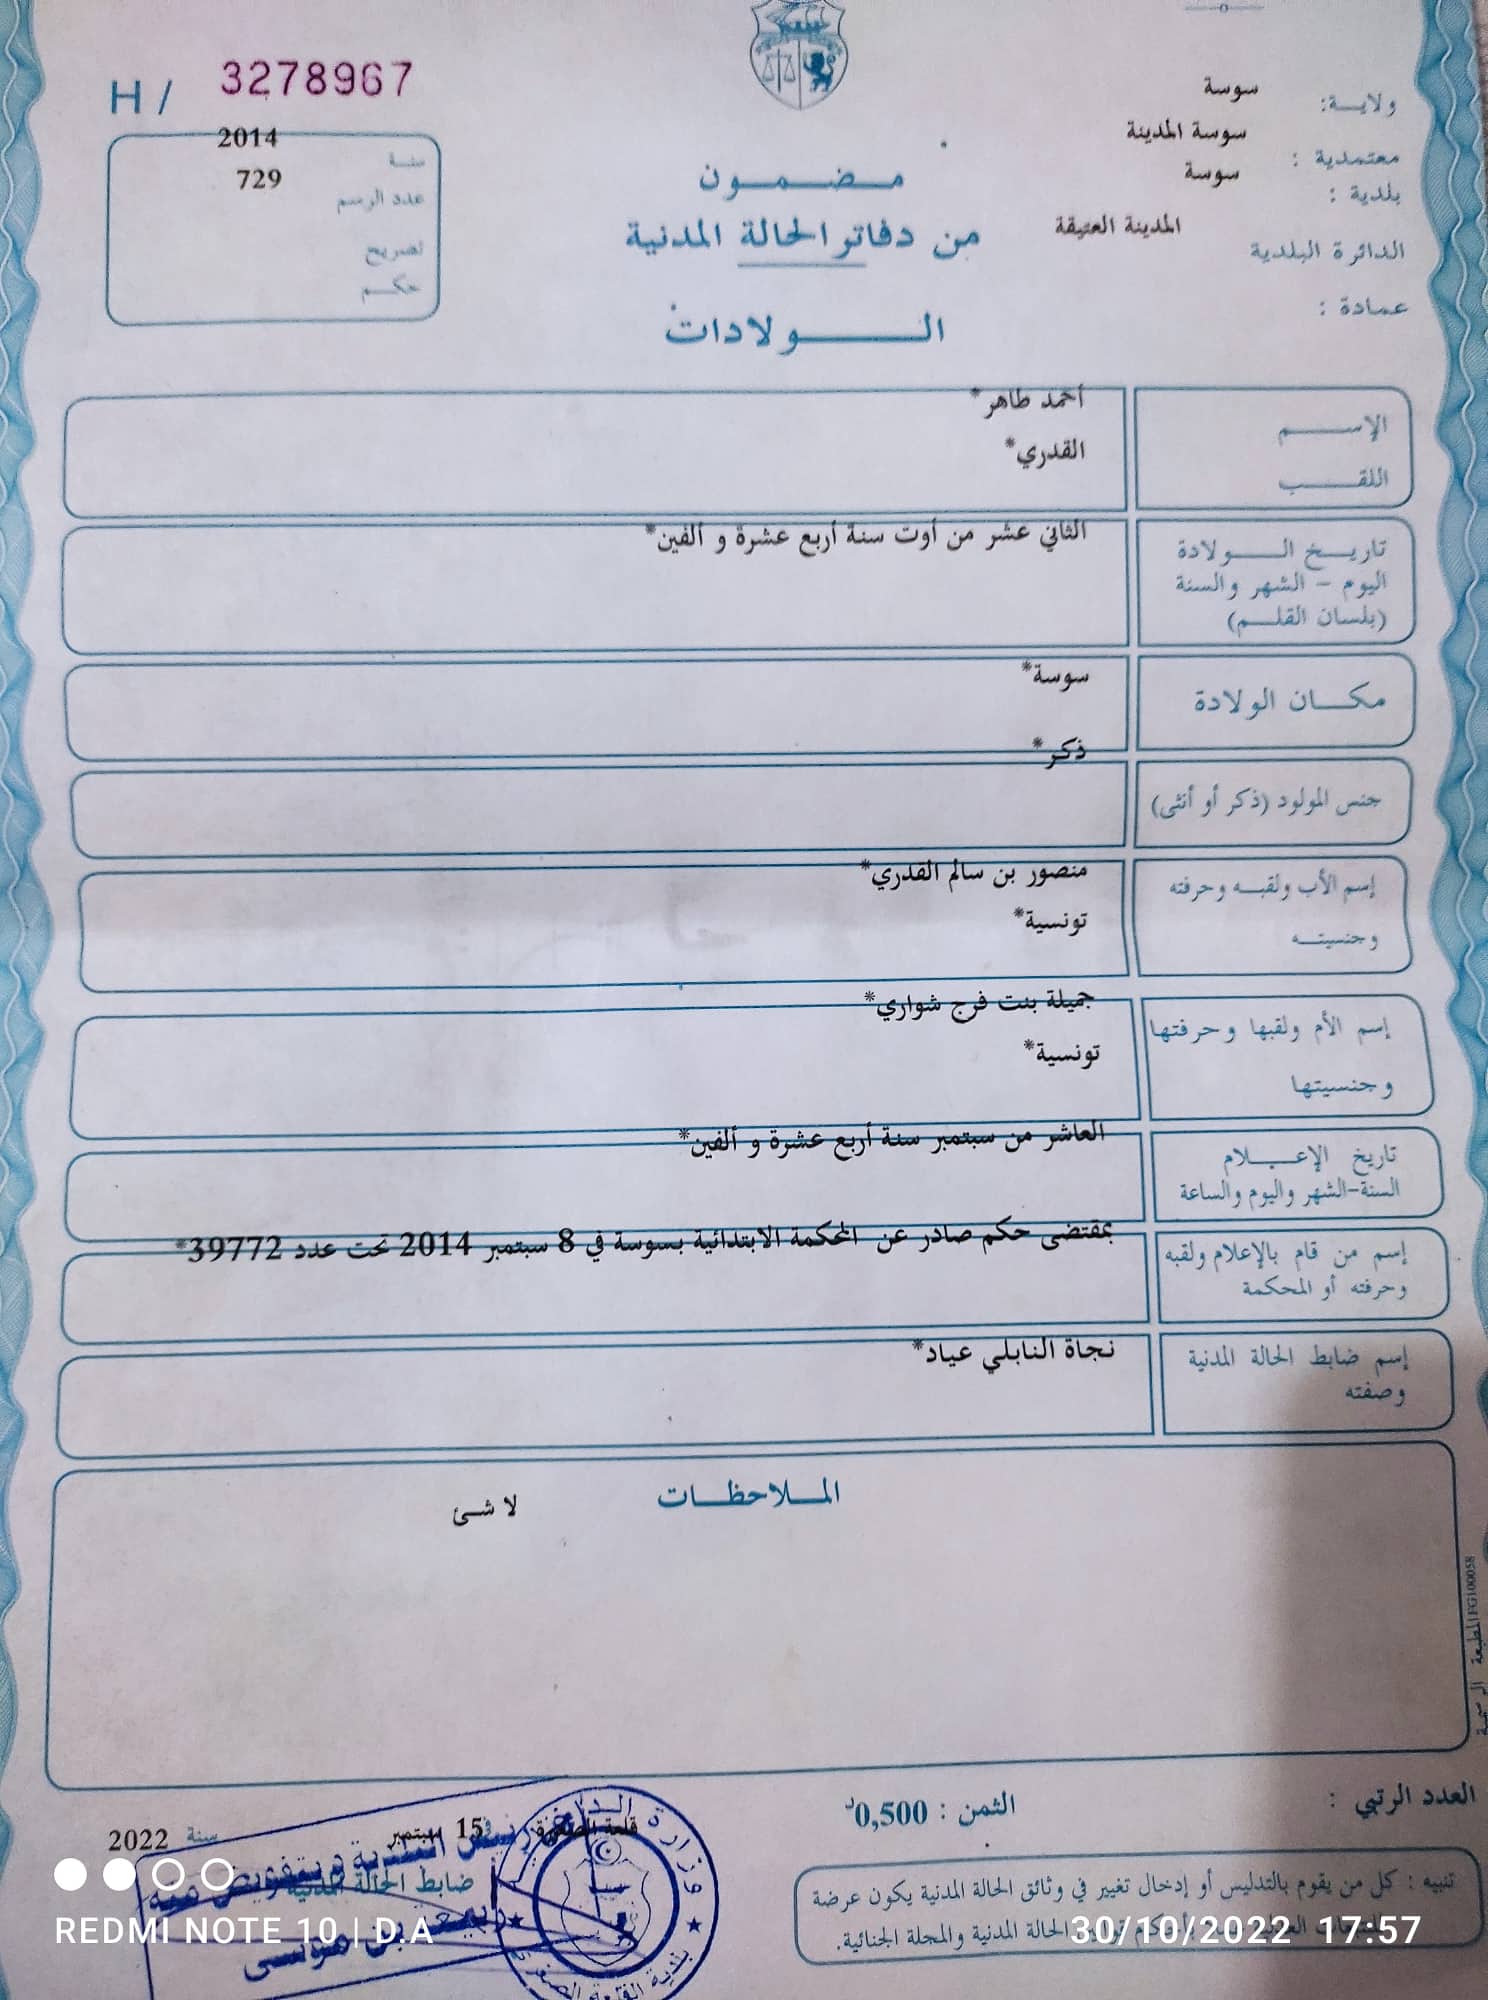 H / 3278967
ولاية: سوسة
معتمدية : سوسة المدينة
بلدية : سوسة
الدائرة البلدية المدينة العتيقة
عمادة :
مضمون
من دفاتر الحالة المدنية
الولادات
سنة 2014
عدد الرسم 729
تصريح
حكم
الإسم أحمد طاهر*
اللقب القدري*
تاريخ الولادة الثاني عشر من أوت سنة أربع عشرة و ألفين*
اليوم - الشهر والسنة
(بلسان القلم)
مكان الولادة سوسة*
جنس المولود (ذكر أو أنثى) ذكر*
إسم الأب ولقبه وحرفته منصور بن سالم القدري*
وجنسيته تونسية*
إسم الأم ولقبها وحرفتها جميلة بنت فرج شواري*
وجنسيتها تونسية*
تاريخ الإعلام العاشر من سبتمبر سنة أربع عشرة و ألفين*
السنة-الشهر واليوم والساعة
إسم من قام بالإعلام ولقبه بمقتضى حكم صادر عن المحكمة الابتدائية بسوسة في 8 سبتمبر 2014 تحت عدد 39772*
وحرفته أو المحكمة
إسم ضابط الحالة المدنية نجاة النابلي عياد*
وصفته
الملاحظات
لا شئ
المطبعة الرسمية FG100058
العدد الرتبي :
الثمن : 0,500د
15 سبتمبر سنة 2022
ضابط الحالة المدنية
تنبيه : كل من يقوم بالتدليس أو إدخال تغيير في وثائق الحالة المدنية يكون عرضة
الحالة المدنية والمجلة الجنائية.
REDMI NOTE 10 | D.A
30/10/2022 17:57